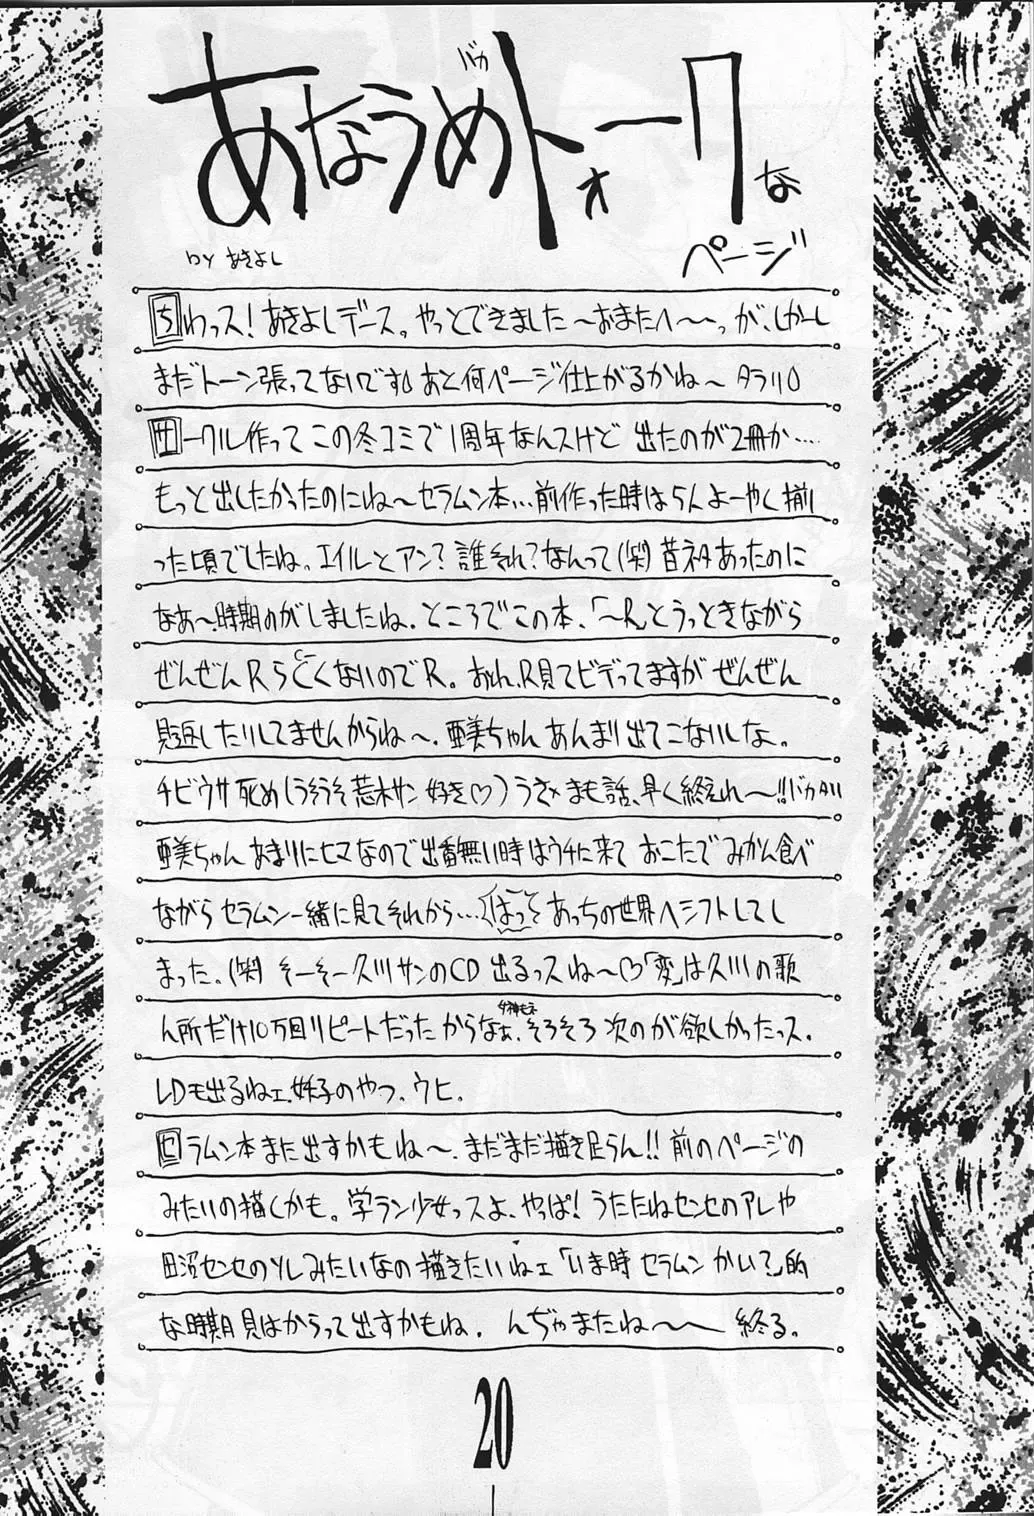 バカ
あなうめトォークな
ページ
by あきよし
ちわっス!あきよしデース。やっとできました〜おまたへ〜〜っが、しかーし
まだトーン張ってないです あと何ページ仕上がるかね〜 タラリ
サークル作って この冬コミで 1周年なんスけど 出たのが2冊か…
もっと出したかったのにね〜セラムン本…前作った時は5人よーやく揃
った頃でしたね。エイルとアン?誰それ?なんって(笑)昔ネタあったのに
なぁ〜、時期のがしましたね。ところでこの本、「〜R」とうっときながら
ぜんぜんRらしくないのでR。おれ、R見てビデってますが ぜんぜん
見返したりしてませんからね〜、亜美ちゃん あんまり出てこないしな。
チビウサ死め(うそうそ荒木サン 好き♡)うさ×まも話、早く終えれ〜!!バカタリ
亜美ちゃん あまりにヒマなので出番無い時はウチに来て おこたで みかん食べ
ながら セラムン一緒に見てそれから…はっ あっちの世界へシフトしてし
まった。(笑) そーそー久川サンのCD 出るっスね〜♡「変」は久川の歌
ん所だけ10万回リピートだった からなぁ、そろそろ 次のが欲しかったっス。
LDも出るねェ、妖子のやつ、ウヒ。
セラムン本また出すかもね〜、まだまだ描き足らん!!前のページの
みたいの描くかも。学ラン少女っスよ、やっぱ!うたたねセンセのアレや
田沼センセのソレみたいなの描きたいねェ「いま時 セラムン かいて」的
な時期 見はからって出すかもね。んぢゃまたね〜〜 終る。
20